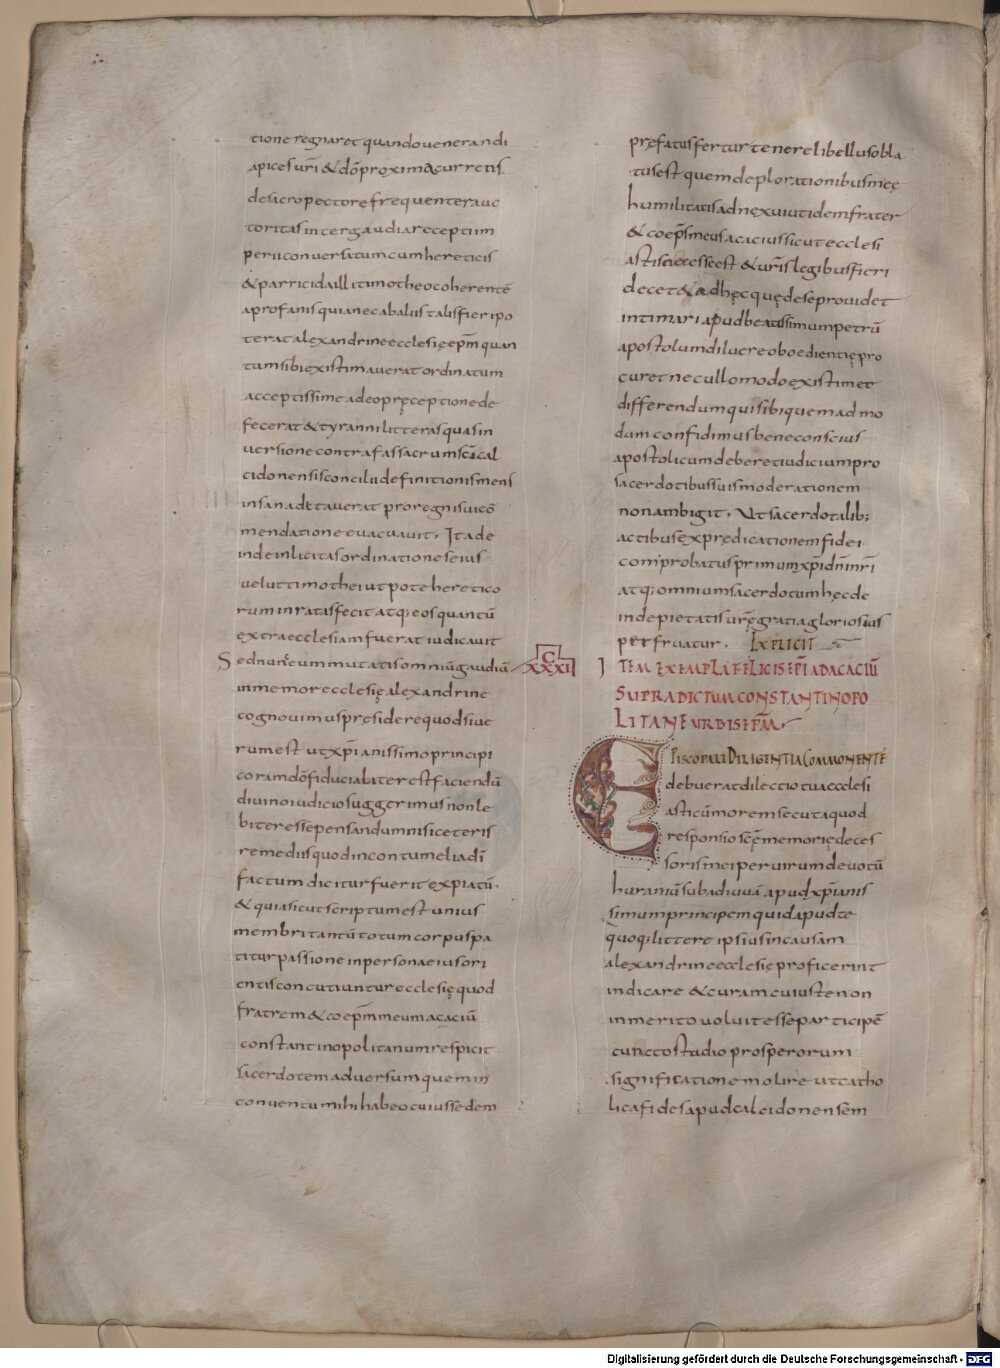 tione regnaret quando uenerandi
apices uri & dō proximę cucurretis.
desacro pectore frequenter auc
toritas inter gaudia receptum
perii conuersatum cum hereticis
& parricidailli timotheo coherentē
a profanis quia nec ab aliis talis fieri po
terat alexandrine ecclesię epm quan
tum sibi existimauerat ordinatum
acceptissime adeo pręceptione de
fecerat & tyranni litteras quas in
uersione contra fas sacrum scā cal
cidonensis concilii definitionis mens
insana dictauerat pro regni sui cō
mendatione euacuauit. Ita de
inde inlicitas ordinatione seius
uelut timothei ut pote heretico
rum inratas fecit atq; eos quantū
extra ecclesiam fuerat iudicauit
Sed nunc eum mutatis omniū gaudiū
inme mor ecclesię alexandrine
cognouimus pręsidere quod siue
rum est ut xpianissimo principi
coram dō fiducialiter est faciendū
diuino iudicio suggerimus non le
biter esse pensandum nisi ceteris
remediis quod in contumelia dī
factum dicitur fuerit expiatū.
& quia sicut scriptum est unius
membri tantū totum corpus pa
titur passione in persona eius ori
entis concutiuntur ecclesię quod
fratrem & coepm meum acaciū
constantinopolitanum respicit
sacerdotem aduersum quem in
conuentu mihi habeo cuius sedem
C
XXXII
pręfatus fertur tenere libellus obla
tus est quem deplorationibus męę
humilitatis adnexui ut idem frater
& coeps meus acacius sicut ecclesi
asticis necesse est & uris legibus fieri
decet & adhęc quę de se prouidet
intimari apud beatissimum petrū
apostolum diluere oboedientię pro
curet nec ullo modo existimet
differendum qui sibi quem ad mo
dum confidimus bene conscius
apostolicum debere iudicium pro
sacerdotibus suis moderationem
non ambigit. Ut sacerdotalib;
actibus ex prędicationem fidei
comprobatus primum xpi dni nri
atq; omnium sacerdotum hęc de
inde pietatis urę gratia gloriosius
perfruatur. EXPLICIT
ITEM EXEMPLA FELICIS EPI AD ACACIŪ
SUPRADICTUM CONSTANTINOPO
LITANE URBIS EPM
EPISCOPALI DILIGENTIA COMMONENTE
debuerat dilectio tua ecclesi
asticū morem secuta quod
responsio scę memorię deces
soris mei per uirum deuotū
huraniū subadiuuā apud xpianis
simum principem quid apud te
quoq; littere ipsius in causam
alexandrine ecclesię proficerint
indicare & curam cuius te non
inmerito uoluit esse participē
cuncto studio prosperorum
significatione molire ut catho
lica fides apud calcidonensem
Digitalisierung gefördert durch die Deutsche Forschungsgemeinschaft - DFG